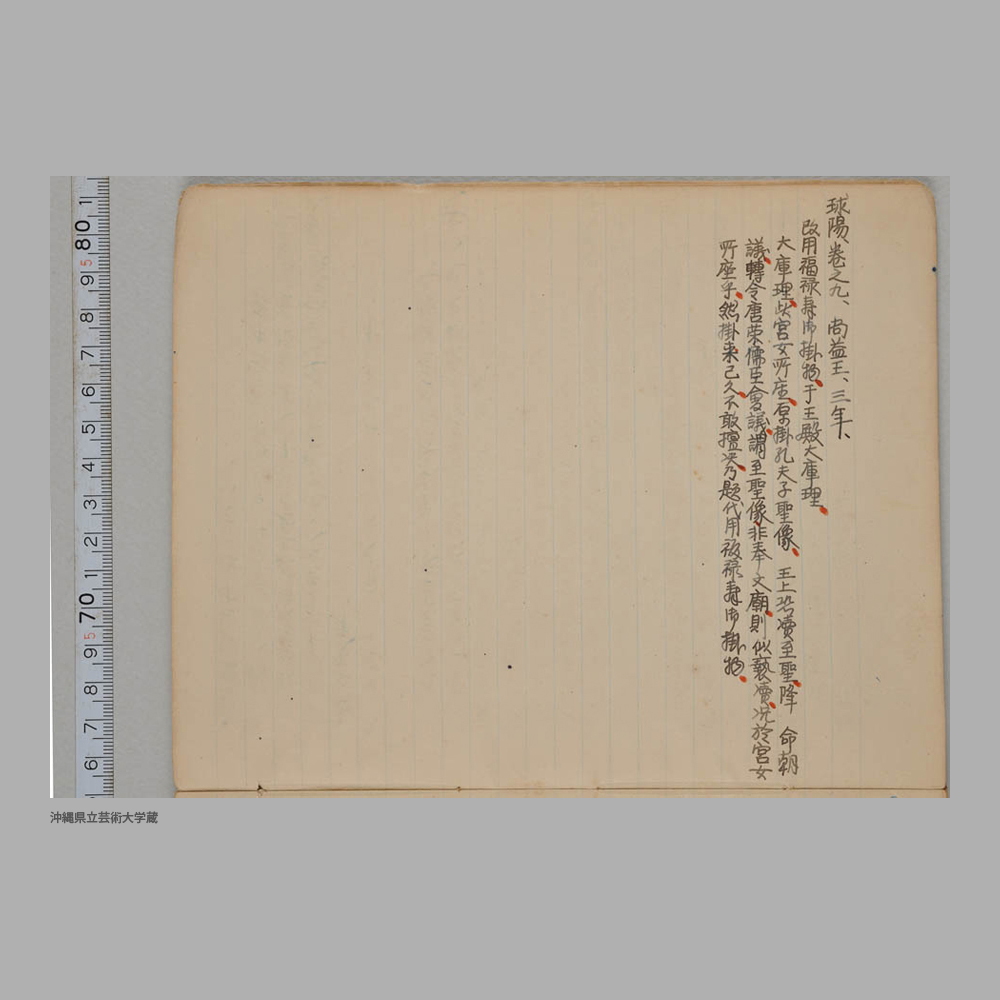 球陽、巻之九、尚益王、三年、
改用福禄寿御掛物于王殿大庫理
大庫理此宮女所座原掛孔夫子聖像、王上恐瀆至聖降 命朝
議轉令唐栄儒臣會議謂至聖像非奉文廟則似褻瀆况於宮女
所座乎然掛来已久不敢擅決乃題代用福禄寿御掛物
1 80 5 9 8 7 6 5 4 3 2 1 70 5 9 8 7 6
沖縄県立芸術大学蔵